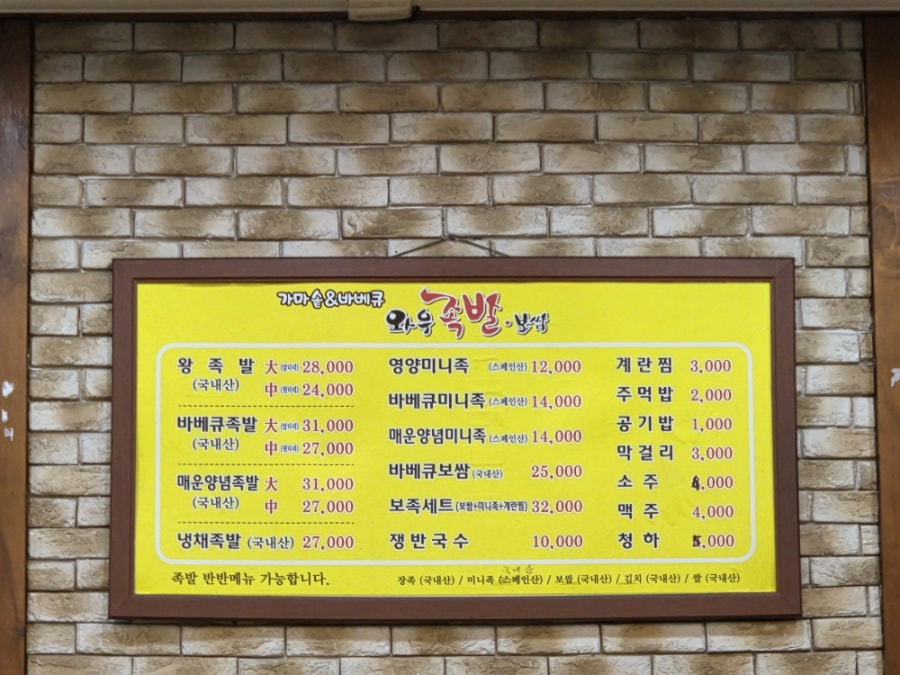 가마솥&바베큐
와우족발·보쌈
왕족발 大 (앞다리) 28,000
(국내산) 中 (뒷다리) 24,000
바베큐족발 大 (앞다리) 31,000
(국내산) 中 (뒷다리) 27,000
매운양념족발 大 31,000
(국내산) 中 27,000
냉채족발 (국내산) 27,000
영양미니족 (스페인산) 12,000
바베큐미니족 (스페인산) 14,000
매운양념미니족 (스페인산) 14,000
바베큐보쌈 (국내산) 25,000
보족세트 (보쌈+미니족+계란찜) 32,000
쟁반국수 10,000
계란찜 3,000
주먹밥 2,000
공기밥 1,000
막걸리 3,000
소주 4,000
맥주 4,000
청하 5,000
족발 반반메뉴 가능합니다.
장족 (국내산) / 미니족 (스페인산) / 보쌈 (국내산) / 김치 (국내산) / 쌀 (국내산)